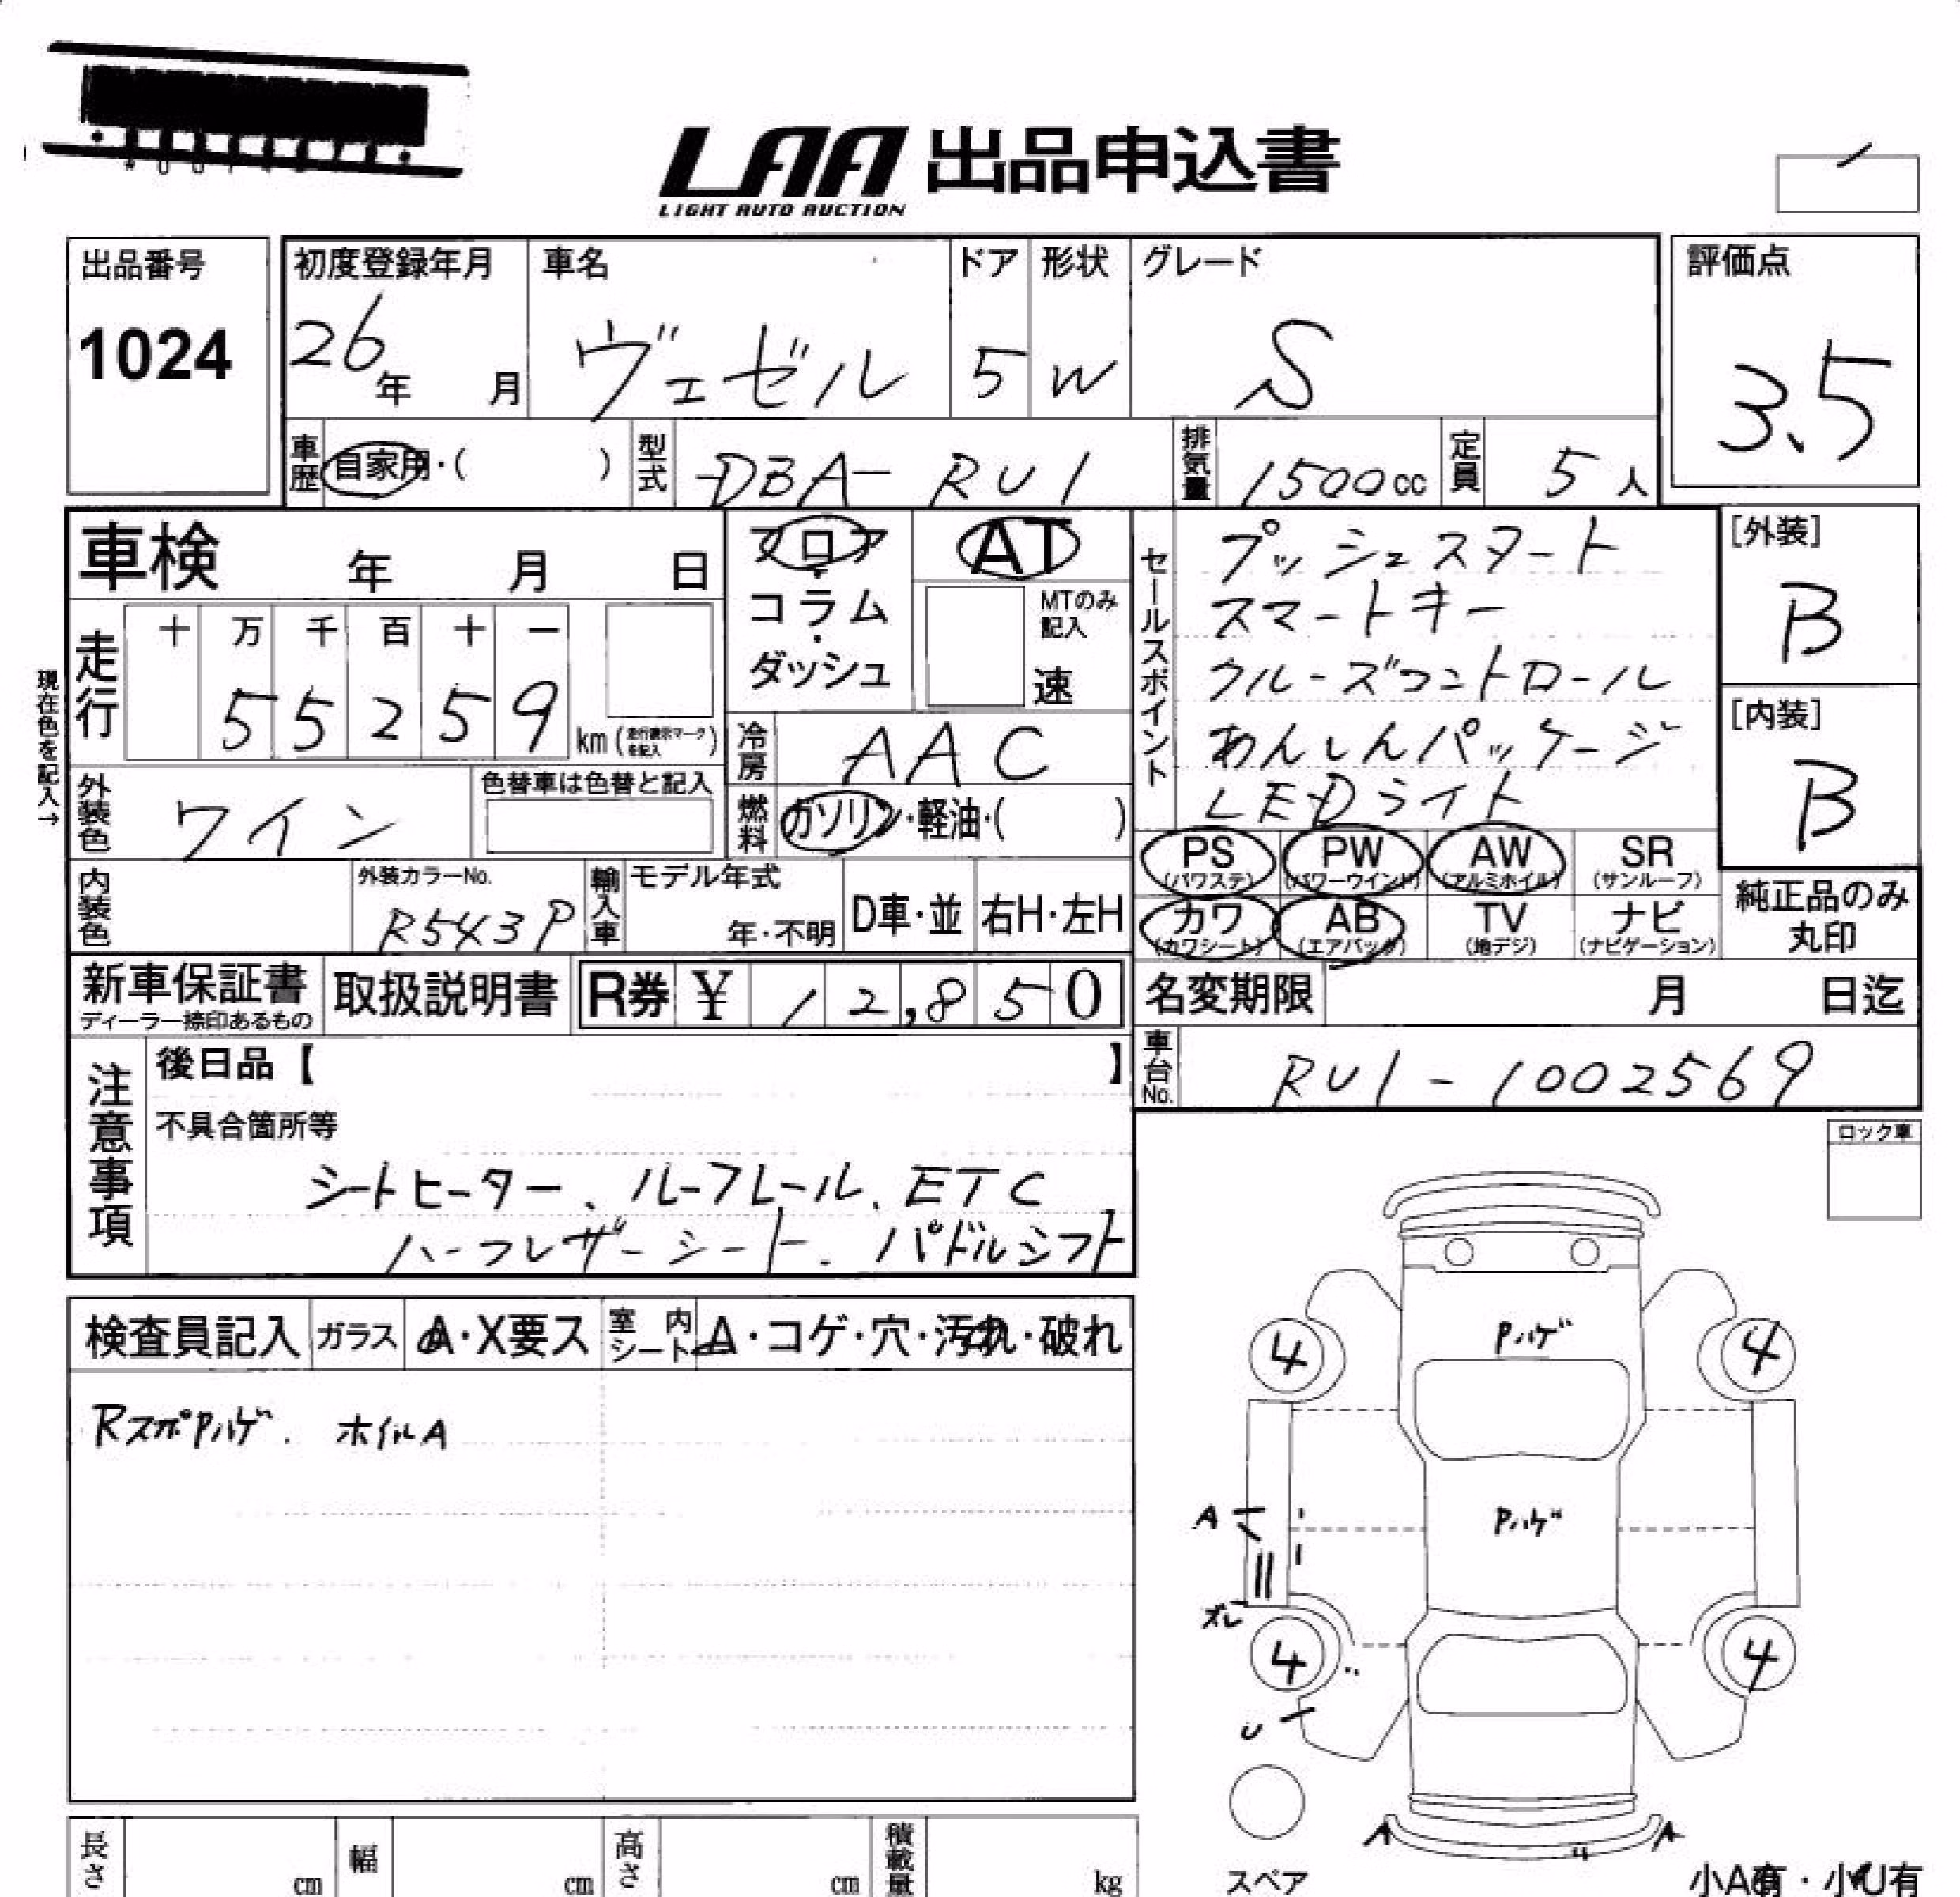 LAA 出品申込書
LIGHT AUTO AUCTION
出品番号
1024
初度登録年月
26年 月
車名
ヴェゼル
ドア
5
形状
W
グレード
S
評価点
3.5
車歴 自家用・( )
型式 DBA-RU1
排気量 1500cc
定員 5人
車検 年 月 日
フロア・コラム・ダッシュ
AT
MTのみ記入
速
セールスポイント
プッシュスタート
スマートキー
クルーズコントロール
あんしんパッケージ
LEDライト
[外装]
B
[内装]
B
現在色を記入→
走行
十 万 千 百 十 一
5 5 2 5 9 km (走行表示マークを記入)
冷房 AAC
外装色 ワイン
色替車は色替と記入
燃料 ガソリン・軽油・( )
PS (パワステ)
PW (パワーウインド)
AW (アルミホイル)
SR (サンルーフ)
カワ (カワシート)
AB (エアバッグ)
TV (地デジ)
ナビ (ナビゲーション)
純正品のみ丸印
内装色
外装カラーNo.
R543P
輸入車
モデル年式
年・不明
D車・並
右H・左H
新車保証書
ディーラー捺印あるもの
取扱説明書
R券 ¥ 12,850
名変期限 月 日迄
車台No. RU1-1002569
注意事項
後日品【 】
不具合箇所等
シートヒーター、ルーフレール、ETC
ハーフレザーシート、パドルシフト
ロック車
検査員記入
ガラス A・X要ス
室内シート A・コゲ・穴・汚れ・破れ
RスポPハゲ. ホイルA
Pハゲ
4 4
A
Pハゲ
ズレ
4 4
U
A A
スペア
小A有・小U有
長さ cm
幅 cm
高さ cm
積載量 kg